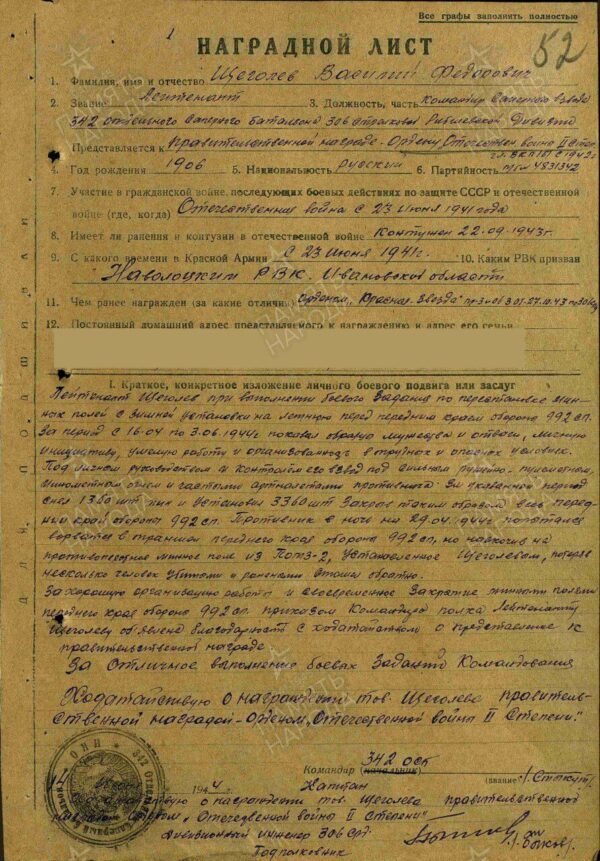 Все графы заполнять полностью
52
НАГРАДНОЙ ЛИСТ
1. Фамилия, имя и отчество Щеголев Василий Федорович
2. Звание Лейтенант 3. Должность, часть командир саперного взвода
342 отдельного саперного батальона 306 стрелковой Дивизии
Представляется к правительственной награде - Ордену Отечествен. война II степ.
4. Год рождения 1906 5. Национальность русский 6. Партийность
7. Участие в гражданской войне, последующих боевых действиях по защите СССР и отечественной
войне (где, когда) Отечественная война с 23 июня 1941 года
8. Имеет ли ранения и контузии в отечественной войне Контужен 22.09.1943г.
9. С какого времени в Красной Армии с 23 июня 1941г. 10. Каким РВК призван
Наволоцким РВК. Ивановской области
11. Чем ранее награжден (за какие отличия) Орденом „Красная Звезда"
12. Постоянный домашний адрес представляемого к награждению и адрес его семьи
I. Краткое, конкретное изложение личного боевого подвига или заслуг
Лейтенант Щеголев при выполнении боевого задания по перестановке мин-
ных полей с зимней установки на летнюю перед передним краем обороны 992 сп.
За период с 16.04 по 3.06.1944г показал образец мужества и отваги, личную
инициативу, умелую работу и организованность в трудных и опасных условиях.
Под личным руководством и контролем его взвод под сильным ружейно-пулеметным,
минометным огнем и частыми артналетами противника. За указанный период
снял 1360 шт мин и установил 3360 шт закрыв таким образом весь перед-
ний край обороны 992 сп. Противник в ночь на 29.04.1944г попытался
ворваться в траншеи переднего края обороны 992 сп, но наскочив на
противопехотное минное поле из ПОМЗ-2, установленное Щеголевым, потеряв
несколько человек убитыми и ранеными отошел обратно.
За хорошую организацию работы и своевременное закрытие минными полями
переднего края обороны 992 сп. приказом Командира полка Лейтенанту
Щеголеву объявлена благодарность с ходатайством о представление к
правительственной награде
За отличное выполнение боевых заданий Командования
Ходатайствую о награждении тов. Щеголева правитель-
ственной наградой - орденом „Отечественной война II степени."
342 осб
Командир (начальник)
Капитан (звание)
14 июня 1944
Ходатайствую о награждении тов. Щеголева правительственной
наградой орденом „Отечественной война II степени"
Дивизионный инженер 306 срд.
Подполковник Быков